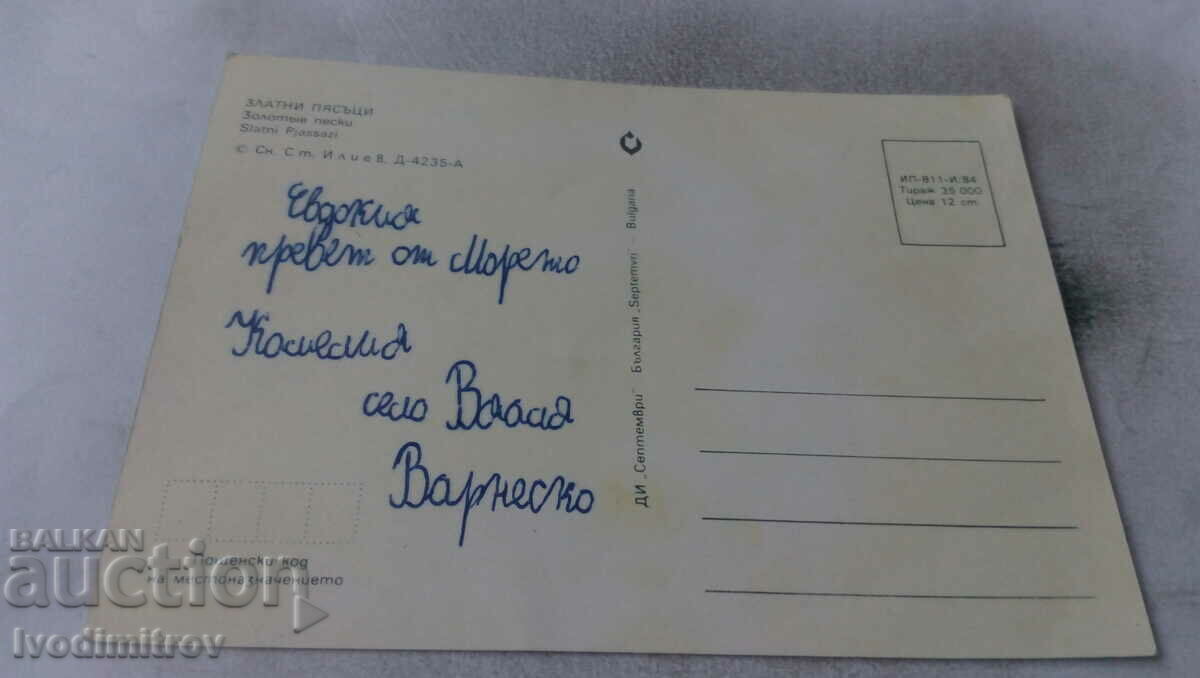 ЗЛАТНИ ПЯСЪЦИ
Золотые пески
Slatni Pjassazi
© Сн. Ст. Илиев, Д-4235-А
Евдокия
превет от Морето
Камелия
село
Варнеско
Пощенски код
на местоназначението
ДИ „Септември" България „Septemvri" – Bulgaria
ИП-811-И/84
Тираж 35 000
Цена 12 ст.
BALKAN
auction
Ivodimitrov